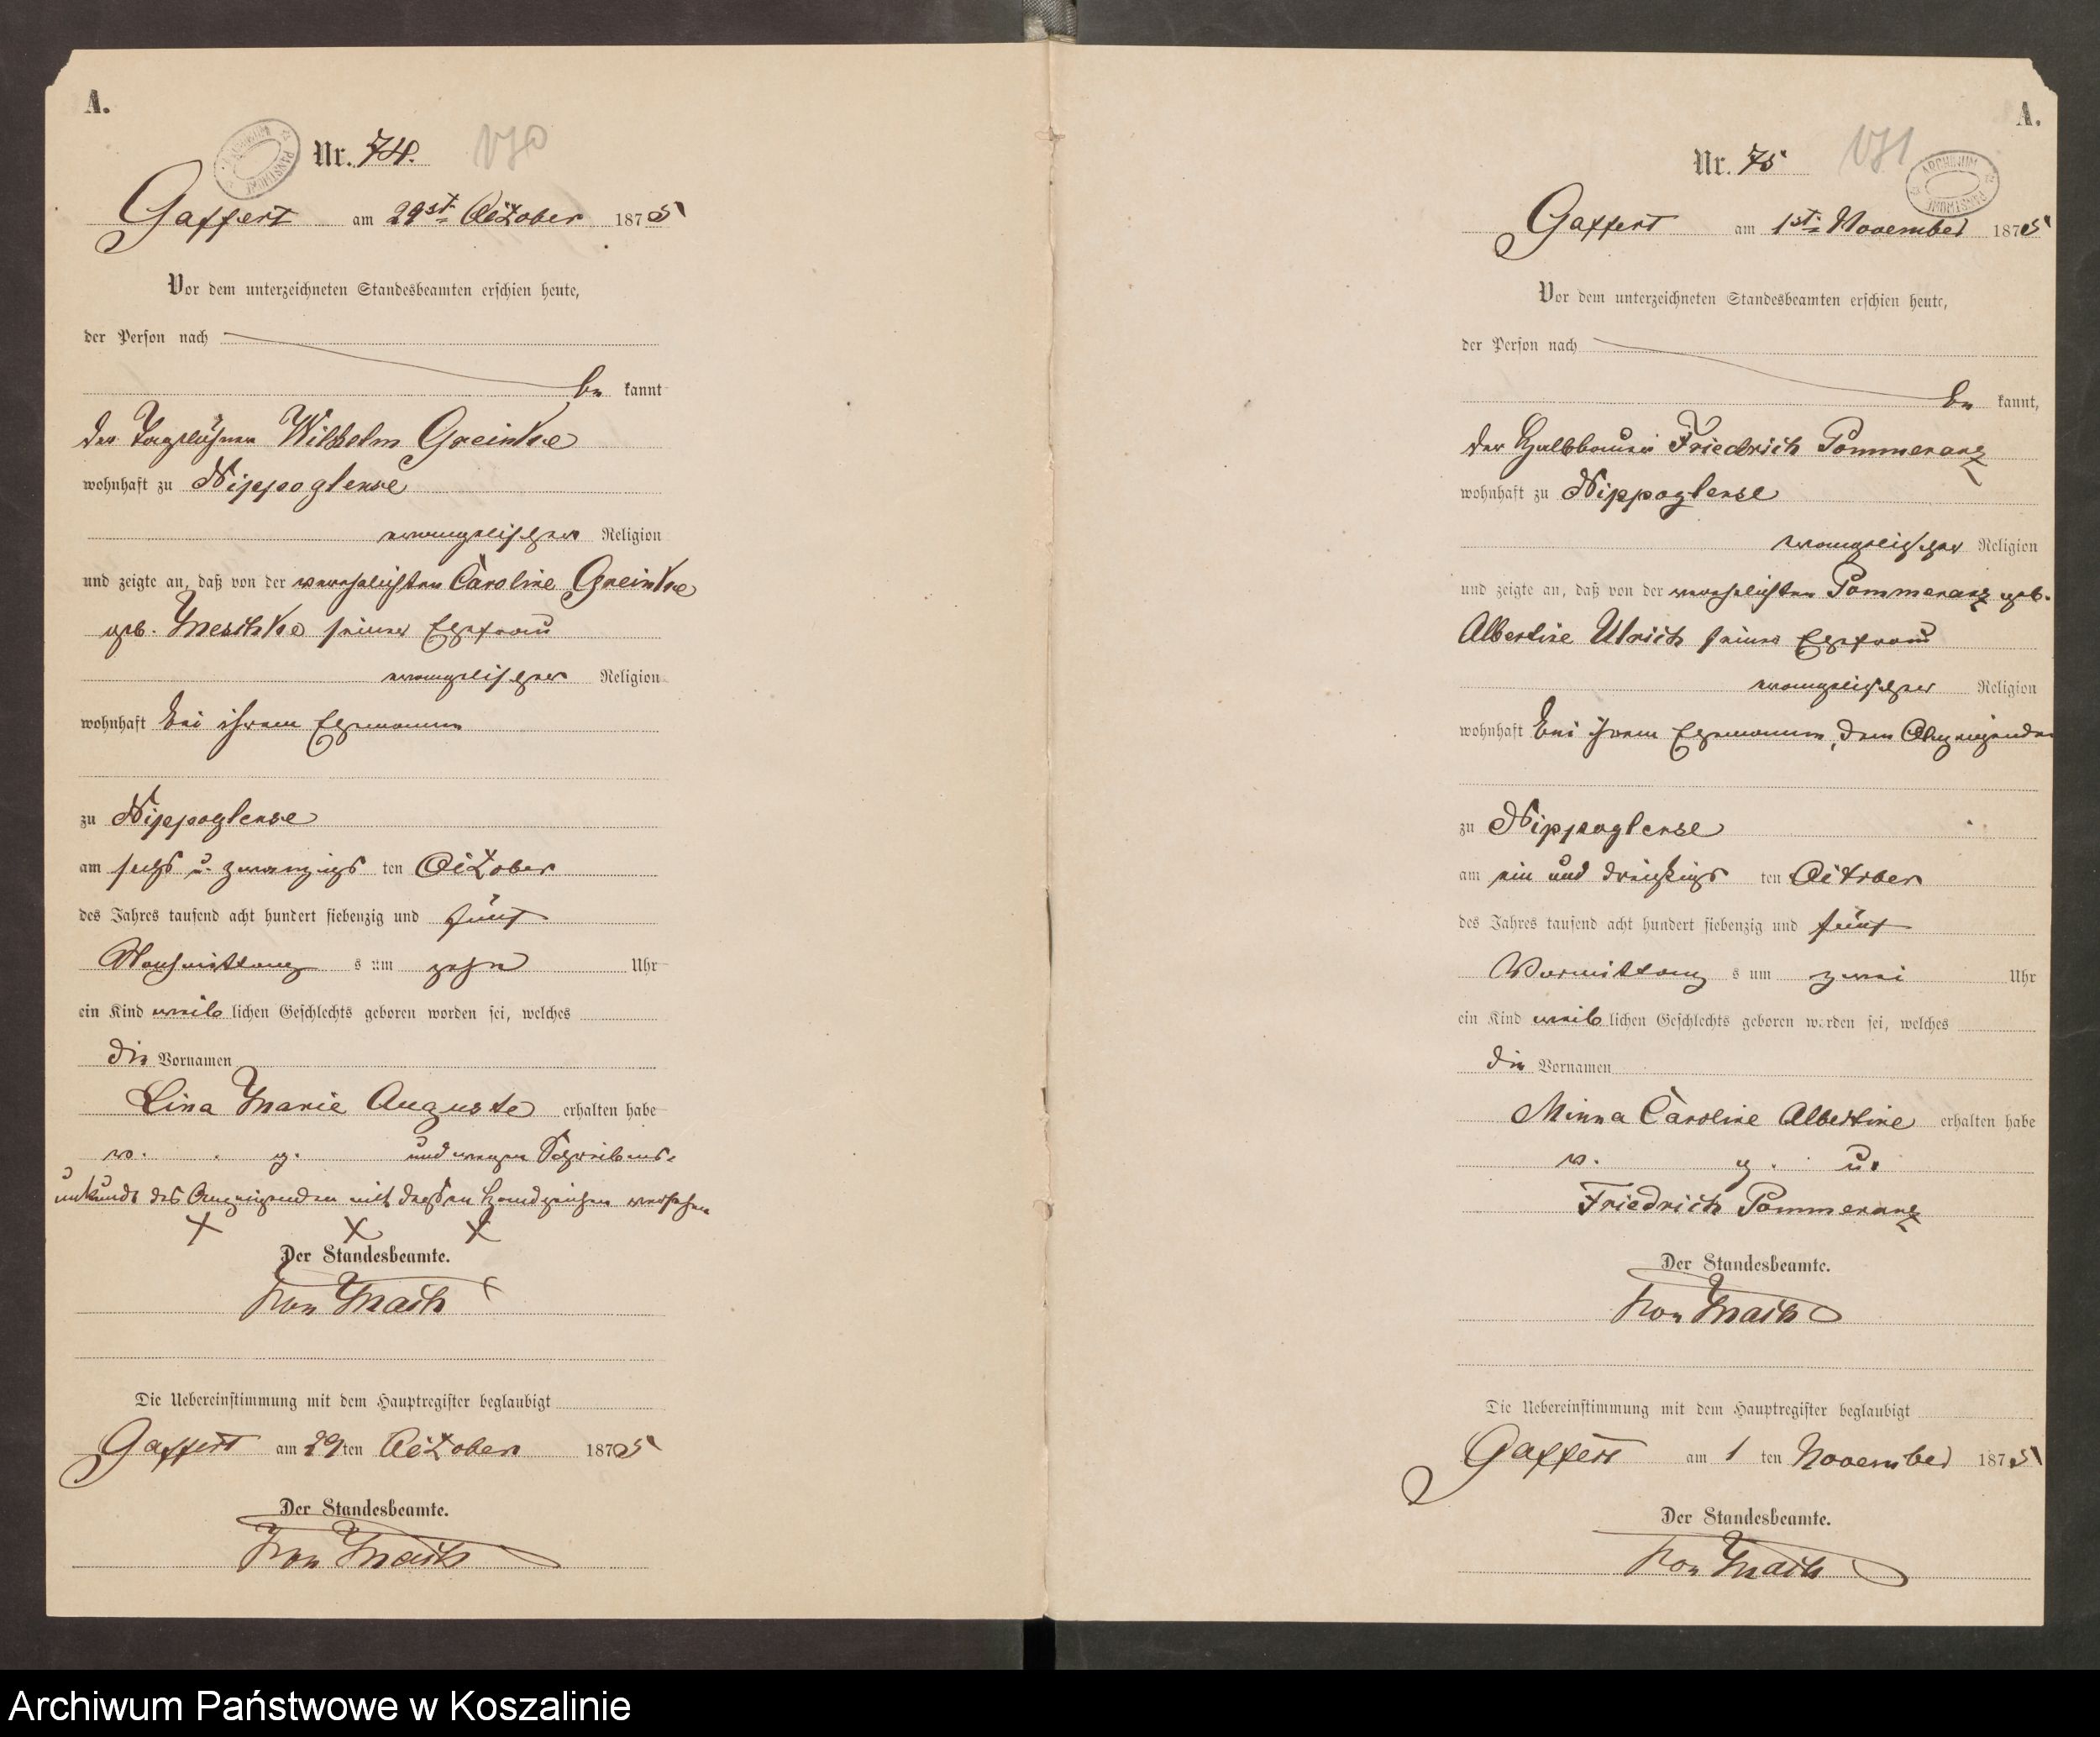 A.
Nr. 74.
130
ARCHIWUM PAŃSTWOWE
Gaffert am 29st October 1875
Vor dem unterzeichneten Standesbeamten erschien heute,
der Person nach
be kannt
der Tagelöhner Wilhelm Greinke
wohnhaft zu Nippoglense
evangelischer Religion
und zeigte an, daß von der verehelichten Caroline Greinke
geb. Meschke seiner Ehefrau
evangelischer Religion
wohnhaft bei ihrem Ehemann
zu Nippoglense
am sechs u. zwanzigs ten October
des Jahres tausend acht hundert siebenzig und fünf
Nachmittag s um zehn Uhr
ein Kind weib lichen Geschlechts geboren worden sei, welches
die Vornamen
Lina Marie Auguste erhalten habe
v. g. und wegen Schreibens-
unkunde des Anzeigenden mit dessen Handzeichen versehen
X X X
Der Standesbeamte.
Die Uebereinstimmung mit dem Hauptregister beglaubigt
Gaffert am 29 ten October 1875
Der Standesbeamte.
A.
Nr. 75
131
ARCHIWUM PAŃSTWOWE
Gaffert am 1st November 1875
Vor dem unterzeichneten Standesbeamten erschien heute,
der Person nach
be kannt,
der Halbbauer Friedrich Pommeranz
wohnhaft zu Nippoglense
evangelischer Religion
und zeigte an, daß von der verehelichten Pommeranz geb.
Albertine Ulrich seiner Ehefrau
evangelischer Religion
wohnhaft bei ihrem Ehemann, dem Anzeigenden
zu Nippoglense
am ein und dreißigs ten October
des Jahres tausend acht hundert siebenzig und fünf
Vormittag s um zwei Uhr
ein Kind weib lichen Geschlechts geboren worden sei, welches
die Vornamen
Minna Caroline Albertine erhalten habe
v. g. u.
Friedrich Pommeranz
Der Standesbeamte.
Die Uebereinstimmung mit dem Hauptregister beglaubigt
Gaffert am 1 ten November 1875
Der Standesbeamte.
Archiwum Państwowe w Koszalinie